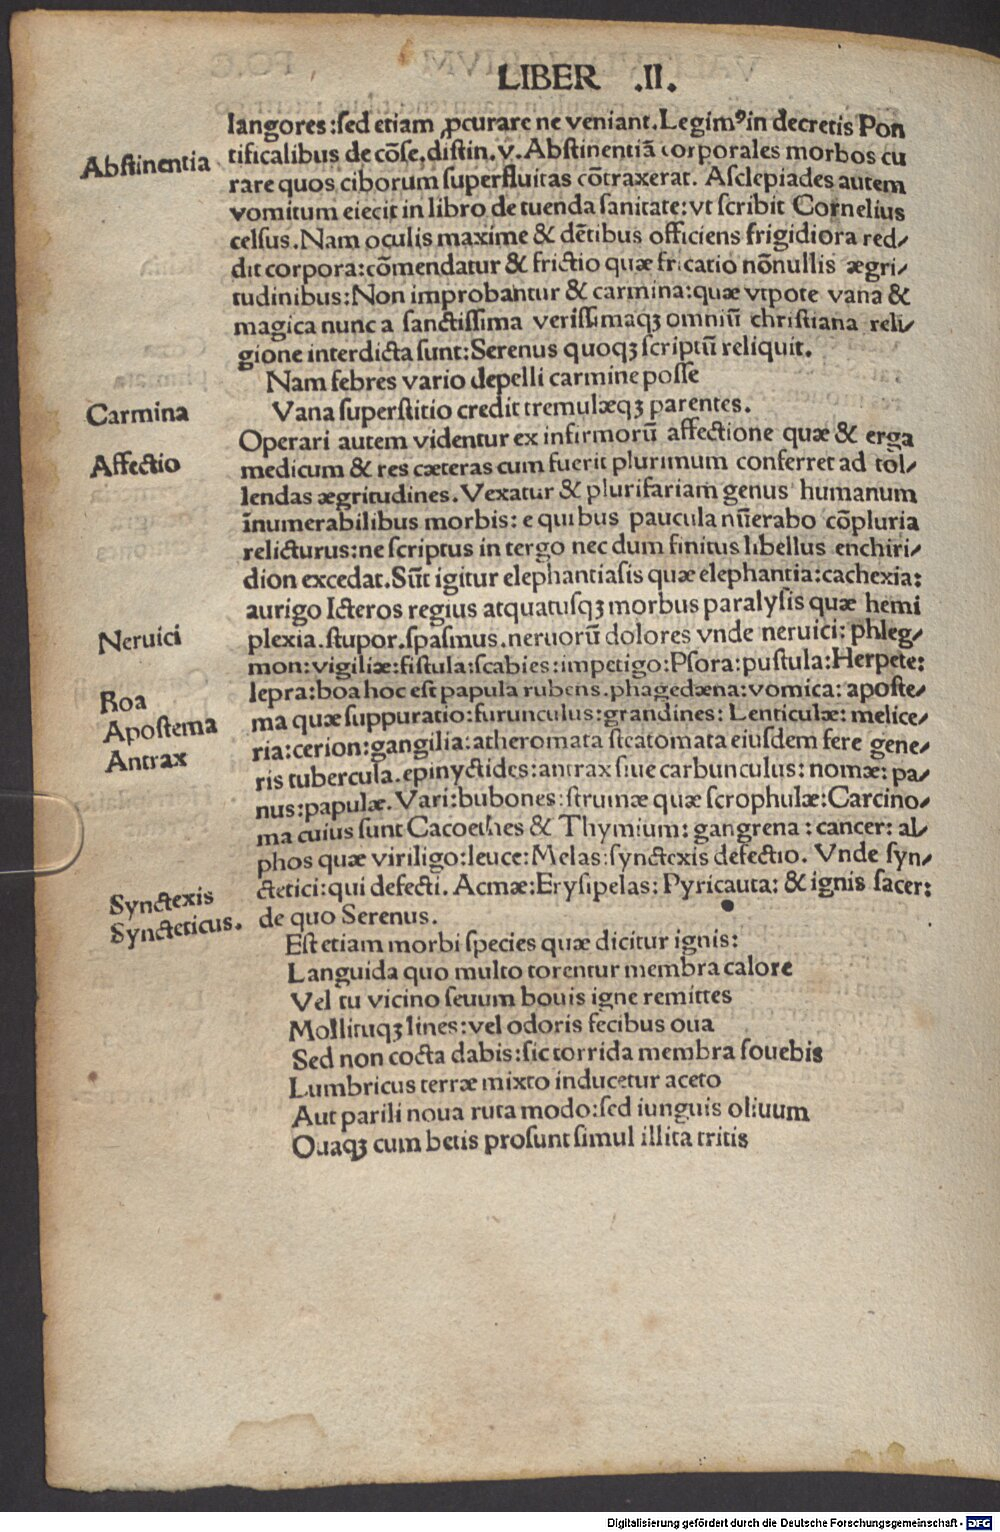 LIBER .II.
langores:sed etiam ꝓcurare ne veniant.Legimꝰ in decretis Pon
Abstinentia
tificalibus de cõse.distin.v.Abstinentiã corporales morbos cu
rare quos ciborum superfluitas cõtraxerat. Asclepiades autem
vomitum eiecit in libro de tuenda sanitate:vt scribit Cornelius
celsus.Nam oculis maxime & dẽtibus officiens frigidiora red/
dit corpora:cõmendatur & frictio quæ fricatio nõnullis ægri/
tudinibus:Non improbantur & carmina:quæ vtpote vana &
magica nunc a sanctissima verissimaqꝫ omniũ christiana reli/
gione interdicta sunt:Serenus quoqꝫ scriptũ reliquit.
Nam febres vario depelli carmine posse
Carmina
Vana superstitio credit tremulæqꝫ parentes.
Operari autem videntur ex infirmorũ affectione quæ & erga
Affectio
medicum & res cæteras cum fuerit plurimum conferret ad tol/
lendas ægritudines.Vexatur & plurifariam genus humanum
ĩnumerabilibus morbis: e quibus paucula nũerabo cõpluria
relicturus:ne scriptus in tergo nec dum finitus libellus enchiri/
dion excedat.Sũt igitur elephantiasis quæ elephantia:cachexia:
aurigo Icteros regius atquatusqꝫ morbus paralysis quæ hemi
Neruici
plexia.stupor.spasmus.neruorũ dolores vnde neruici: phleg/
mon:vigiliæ:fistula:scabies:impetigo:Psora:pustula:Herpete:
Boa
lepra:boa hoc est papula rubens.phagedæna:vomica: aposte/
Apostema
ma quæ suppuratio:furunculus:grandines: Lenticulæ: melice/
Antrax
ria:cerion:gangilia:atheromata steatomata eiusdem fere gene/
ris tubercula.epinyctides:antrax siue carbunculus: nomæ: pa/
nus:papulæ.Vari:bubones:strumæ quæ scrophulæ:Carcino/
ma cuius sunt Cacoethes & Thymium: gangrena : cancer: al/
phos quæ viriligo:leuce:Melas:synctexis defectio. Vnde syn/
Synctexis
ctetici:qui defecti. Acmæ:Erysipelas: Pyricauta: & ignis sacer:
Syncteticus.
de quo Serenus.
Est etiam morbi species quæ dicitur ignis:
Languida quo multo torentur membra calore
Vel tu vicino seuum bouis igne remittes
Mollituqꝫ lines:vel odoris fecibus oua
Sed non cocta dabis:sic torrida membra fouebis
Lumbricus terræ mixto inducetur aceto
Aut parili noua ruta modo:sed iunguis oliuum
Ouaqꝫ cum betis prosunt simul illita tritis
Digitalisierung gefördert durch die Deutsche Forschungsgemeinschaft - DFG